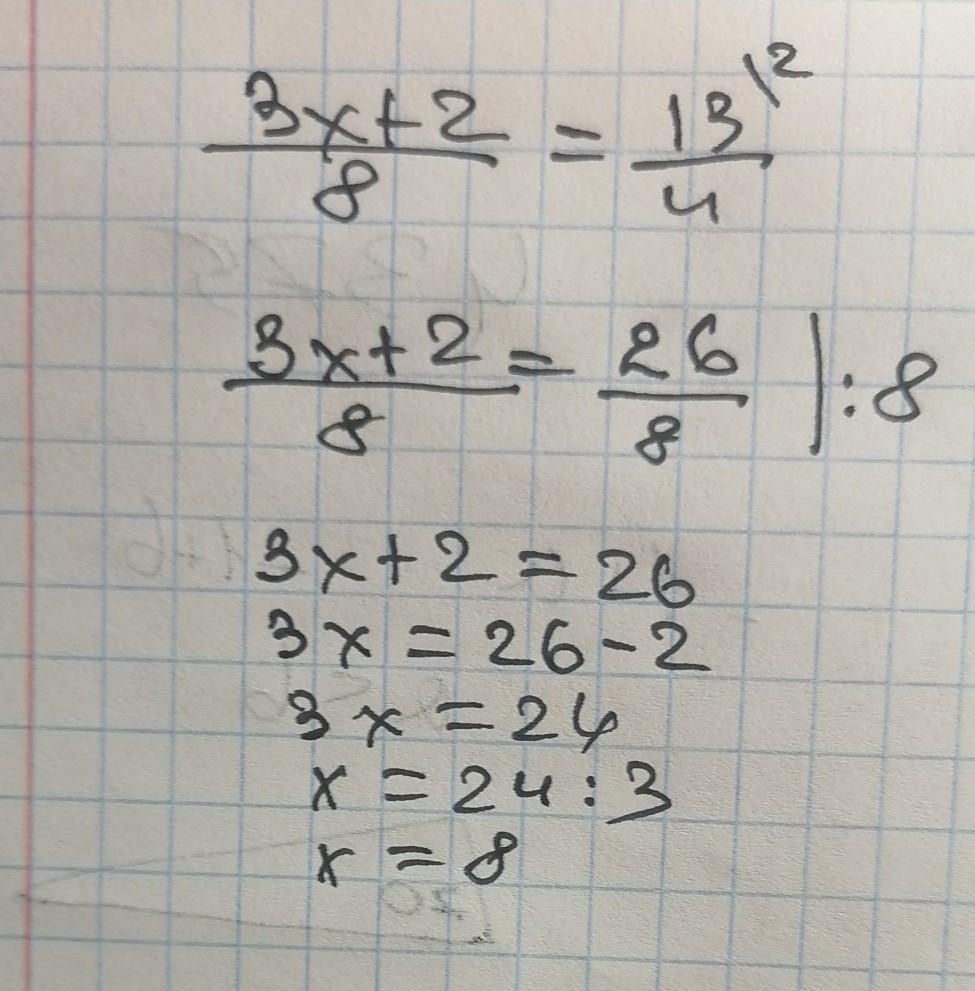 (3x+2)/8 = 13\2/4
(3x+2)/8 = 26/8 | :8
3x+2=26
3x=26-2
3x=24
x=24:3
x=8